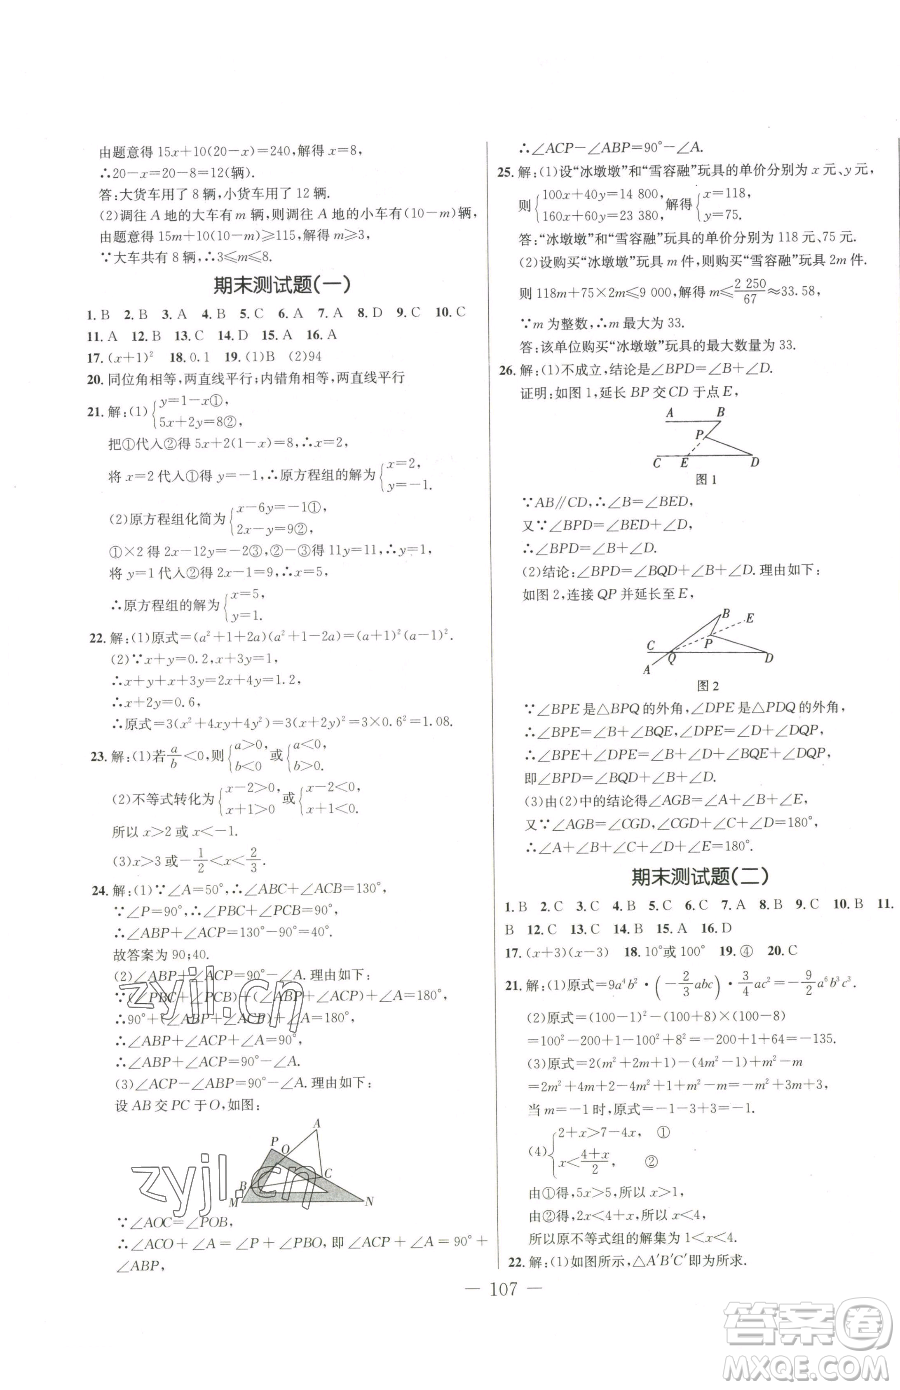 由题意得 15x+10(20-x)=240,解得 x=8,
∴20-x=20-8=12(辆).
答:大货车用了 8 辆,小货车用了 12 辆.
(2)调往 A 地的大车有 m 辆,则调往 A 地的小车有(10-m)辆,
由题意得 15m+10(10-m)≥115,解得 m≥3,
∵大车共有 8 辆,∴3≤m≤8.
期末测试题(一)
1. B 2. B 3. A 4. B 5. C 6. A 7. B 8. D 9. C 10. C
11. A 12. B 13. C 14. D 15. A 16. A
17. (x+1)² 18. 0.1 19. (1)B (2)94
20. 同位角相等,两直线平行;内错角相等,两直线平行
21. 解:(1){y=1-x①,
5x+2y=8②,
把①代入②得 5x+2(1-x)=8,∴x=2,
将 x=2 代入①得 y=-1,∴原方程组的解为{x=2,
y=-1.
(2)原方程组化简为{x-6y=-1①,
2x-y=9②,
①×2 得 2x-12y=-2③,②-③得 11y=11,∴y=1,
将 y=1 代入①得 x-6=-1,∴x=5,
∴原方程组的解为{x=5,
y=1.
22. 解:(1)原式=(a²+1+2a)(a²+1-2a)=(a+1)²(a-1)².
(2)∵x+y=0.2,x+3y=1,
∴x+y+x+3y=2x+4y=1.2,
∴x+2y=0.6,
∴原式=3(x²+4xy+4y²)=3(x+2y)²=3×0.6²=1.08.
23. 解:(1)若a/b<0,则{a>0,
b<0 或{a<0,
b>0.
(2)不等式转化为{x-2>0,
x+1>0 或{x-2<0,
x+1<0.
所以 x>2 或 x<-1.
(3)x>3 或-1/2<x<2/3.
24. 解:(1)∵∠A=50°,∴∠ABC+∠ACB=130°,
∵∠P=90°,∴∠PBC+∠PCB=90°,
∴∠ABP+∠ACP=130°-90°=40°.
故答案为 90;40.
(2)∠ABP+∠ACP=90°-∠A.理由如下:
∵(∠PBC+∠PCB)+(∠ABP+∠ACP)+∠A=180°,
∴90°+(∠ABP+∠ACP)+∠A=180°,
∴∠ABP+∠ACP+∠A=90°,
∴∠ABP+∠ACP=90°-∠A.
(3)∠ACP-∠ABP=90°-∠A.理由如下:
设 AB 交 PC 于 O,如图:
A
P
O
C
B
M
N
∵∠AOC=∠POB,
∴∠ACO+∠A=∠P+∠PBO,即∠ACP+∠A=90°+
∠ABP,
∴∠ACP-∠ABP=90°-∠A.
25. 解:(1)设“冰墩墩”和“雪容融”玩具的单价分别为 x 元、y 元,
则{100x+40y=14 800,
160x+60y=23 380, 解得{x=118,
y=75.
答:“冰墩墩”和“雪容融”玩具的单价分别为 118 元、75 元.
(2)设购买“冰墩墩”玩具 m 件,则购买“雪容融”玩具 2m 件,
则 118m+75×2m≤9 000,解得 m≤2 250/67≈33.58,
∵m 为整数,∴m 最大为 33.
答:该单位购买“冰墩墩”玩具的最大数量为 33.
26. 解:(1)不成立,结论是∠BPD=∠B+∠D.
证明:如图 1,延长 BP 交 CD 于点 E,
A
B
P
C
E
D
图1
∵AB∥CD,∴∠B=∠BED,
又∵∠BPD=∠BED+∠D,
∴∠BPD=∠B+∠D.
(2)结论:∠BPD=∠BQD+∠B+∠D.理由如下:
如图 2,连接 QP 并延长至 E,
B
E
P
C
Q
D
A
图2
∵∠BPE 是△BPQ 的外角,∠DPE 是△PDQ 的外角,
∴∠BPE=∠B+∠BQE,∠DPE=∠D+∠DQP,
∴∠BPE+∠DPE=∠B+∠D+∠BQE+∠DQP,
即∠BPD=∠BQD+∠B+∠D.
(3)由(2)中的结论得∠AGB=∠A+∠B+∠E,
又∵∠AGB=∠CGD,∠CGD+∠C+∠D=180°,
∴∠A+∠B+∠C+∠D+∠E=180°.
期末测试题(二)
1. B 2. C 3. C 4. B 5. C 6. C 7. B 8. C 9. C 10. B 11.
B 12. C 13. C 14. B 15. A 16. D
17. (x+3)(x-3) 18. 10°或 100° 19. ④ 20. C
21. 解:(1)原式=9a⁴b²·(-2/3abc)·3/4ac²=-9/2a⁶b³c³.
(2)原式=(100-1)²-(100+8)×(100-8)
=100²-200+1-100²+8²=-200+1+64=-135.
(3)原式=2(m²+2m+1)-(4m²-1)+2m²-m
=2m²+4m+2-4m²+1+2m²-m=3m+3,
当 m=-1 时,原式=-1×3+3=0.
(4){2+x>7-4x, ①
x<(4+x)/2, ②
由①得,5x>5,所以 x>1,
由②得,2x<4+x,所以 x<4,
所以原不等式组的解集为 1<x<4.
22. 解:(1)如图所示,△A′B′C′即为所求.
— 107 —
zyjl.cn
zyjl.cn
答案圈
MXQE.COM